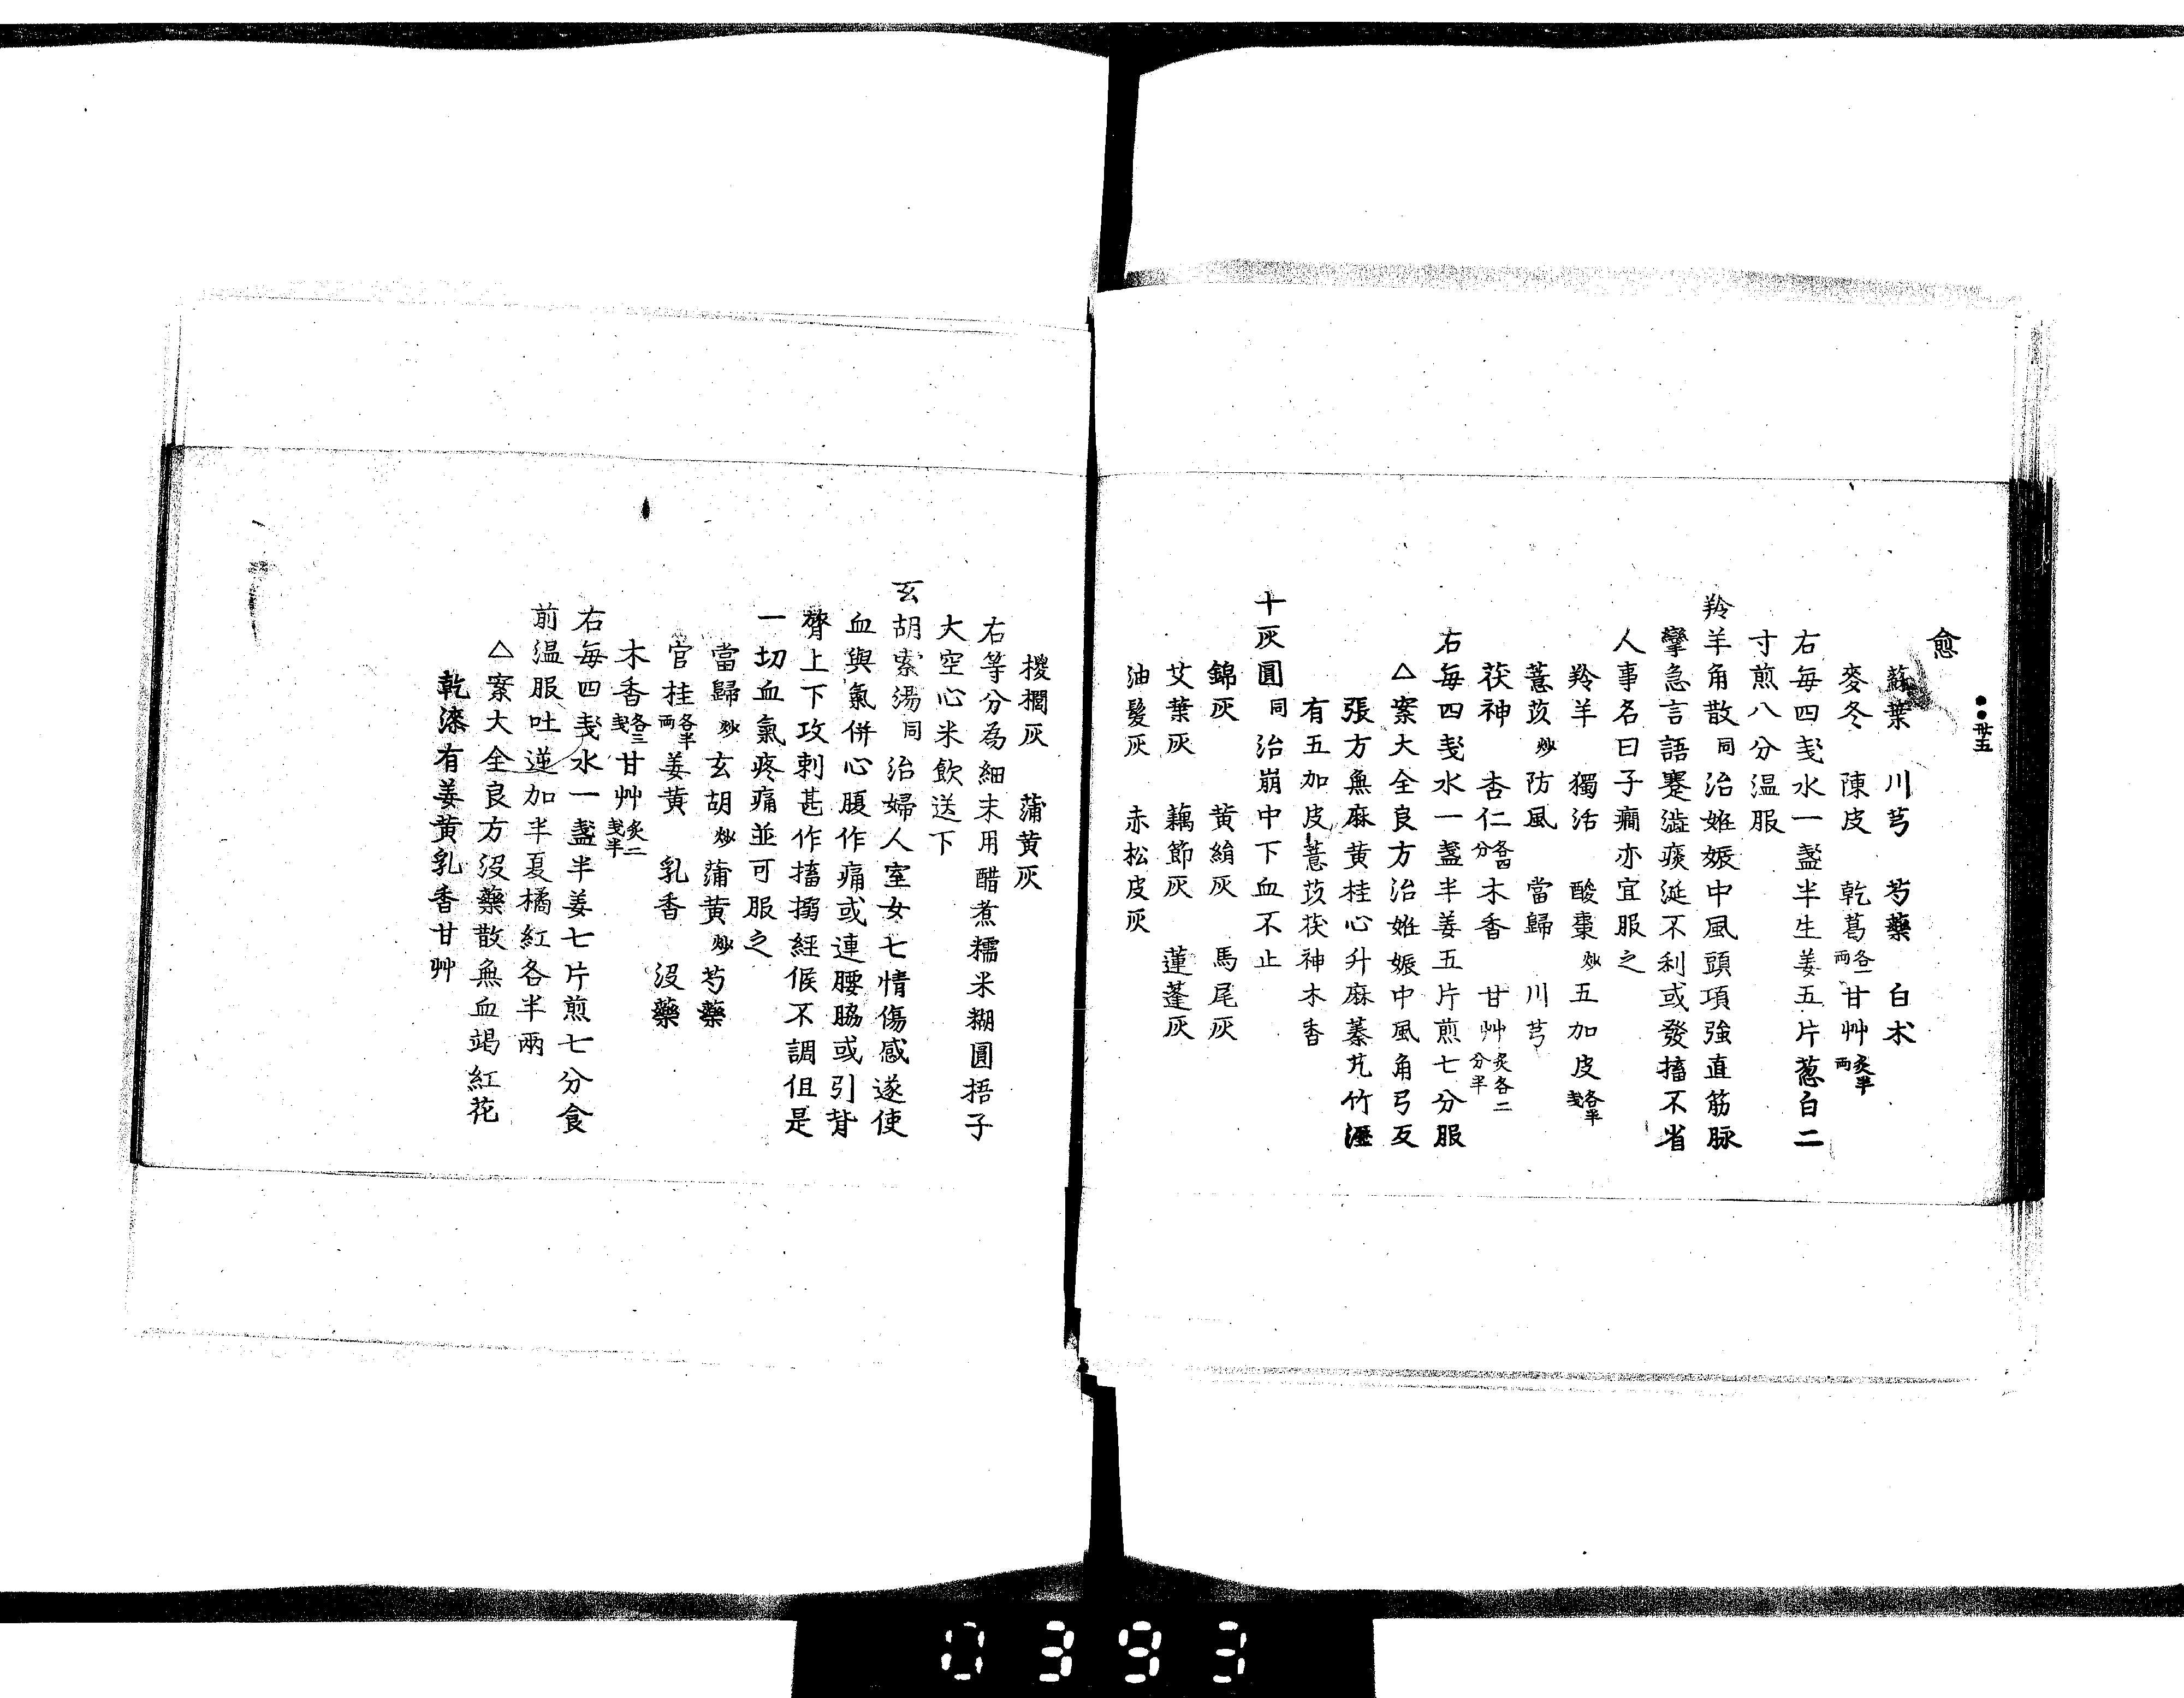 卅五
愈
蘇葉　川芎　芍藥　白朮
麥冬　陳皮　乾葛各一兩甘艸炙半兩
右毎四戔水一盞半生姜五片葱白二
寸煎八分温服
羚羊角散同治姙娠中風頭項強直筋脉
攣急言語蹇澁痰涎不利或發搐不省
人事名曰子癇亦宜服之
羚羊　獨活　酸棗炒五加皮各半戔
薏苡炒防風　當歸　川芎
茯神　杏仁各四分木香　甘艸炙各二分半
右毎四戔水一盞半姜五片煎七分服
△案大全良方治姙娠中風角弓反
張方無麻黄桂心升麻蓁艽竹瀝
有五加皮薏苡茯神木香
十灰圓同治崩中下血不止
錦灰　黄絹灰　馬尾灰
艾葉灰　藕節灰　蓮蓬灰
油髮灰　赤松皮灰
椶櫚灰　蒲黄灰
右等分為細末用醋煮糯米糊圓捂子
大空心米飲送下
玄胡索湯同治婦人室女七情傷感遂使
血與氣併心腹作痛或連腰脇或引背
膂上下攻刺甚作搐搦経候不調伹是
一切血氣疼痛並可服之
當歸炒玄胡炒蒲黄炒芍藥
官桂各半兩姜黄　乳香　沒藥
木香各三戔甘艸炙二戔半
右毎四戔水一盞半姜七片煎七分食
前温服吐逆加半夏橘紅各半兩
△案大全良方沒藥散無血竭紅花
乾漆有姜黄乳香甘艸
0393